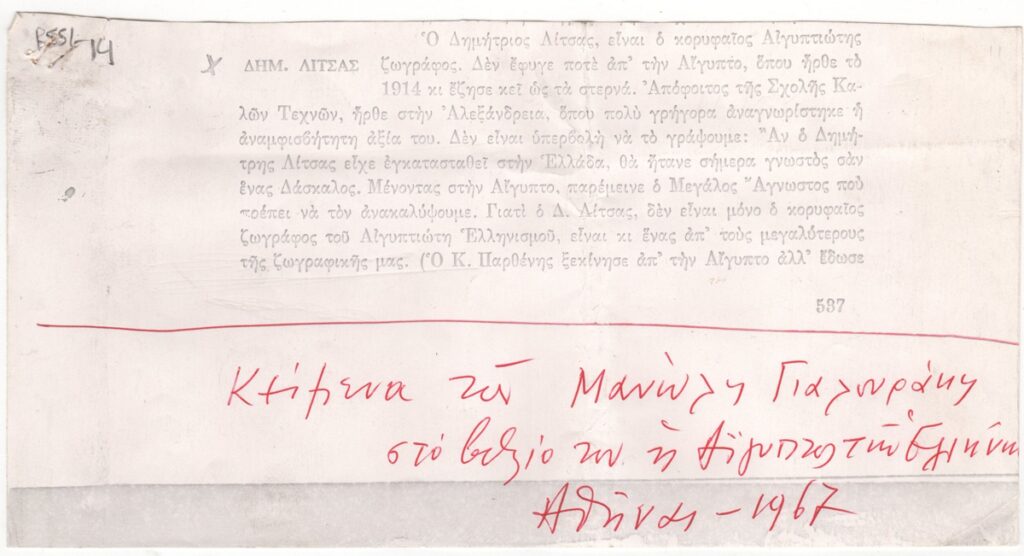 PSSI-14
Ὁ Δημήτριος Λίτσας, εἶναι ὁ κορυφαῖος Αἰγυπτιώτης
ΔΗΜ. ΛΙΤΣΑΣ ζωγράφος. Δὲν ἔφυγε ποτὲ ἀπ' τὴν Αἴγυπτο, ὅπου ἦρθε τὸ
1914 κι ἔζησε κεῖ ὡς τὰ στερνά. Ἀπόφοιτος τῆς Σχολῆς Κα-
λῶν Τεχνῶν, ἦρθε στὴν Ἀλεξάνδρεια, ὅπου πολὺ γρήγορα ἀναγνωρίστηκε ἡ
ἀναμφισβήτητη ἀξία του. Δὲν εἶναι ὑπερβολὴ νὰ τὸ γράψουμε: Ἂν ὁ Δημή-
τρης Λίτσας εἶχε ἐγκατασταθεῖ στὴν Ἑλλάδα, θὰ ἤτανε σήμερα γνωστὸς σὰν
ἕνας Δάσκαλος. Μένοντας στὴν Αἴγυπτο, παρέμεινε ὁ Μεγάλος Ἄγνωστος ποὺ
πρέπει νὰ τὸν ἀνακαλύψουμε. Γιατὶ ὁ Δ. Λίτσας, δὲν εἶναι μόνο ὁ κορυφαῖος
ζωγράφος τοῦ Αἰγυπτιώτη Ἑλληνισμοῦ, εἶναι κι ἕνας ἀπ' τοὺς μεγαλύτερους
τῆς ζωγραφικῆς μας. (Ὁ Κ. Παρθένης ξεκίνησε ἀπ' τὴν Αἴγυπτο ἀλλ' ἔδωσε
537
Κείμενα τοῦ Μανώλη Γιαλουράκη
στὸ βιβλίο του ἡ Αἴγυπτος τῶν Ἑλλήνων
Ἀθήναι - 1967